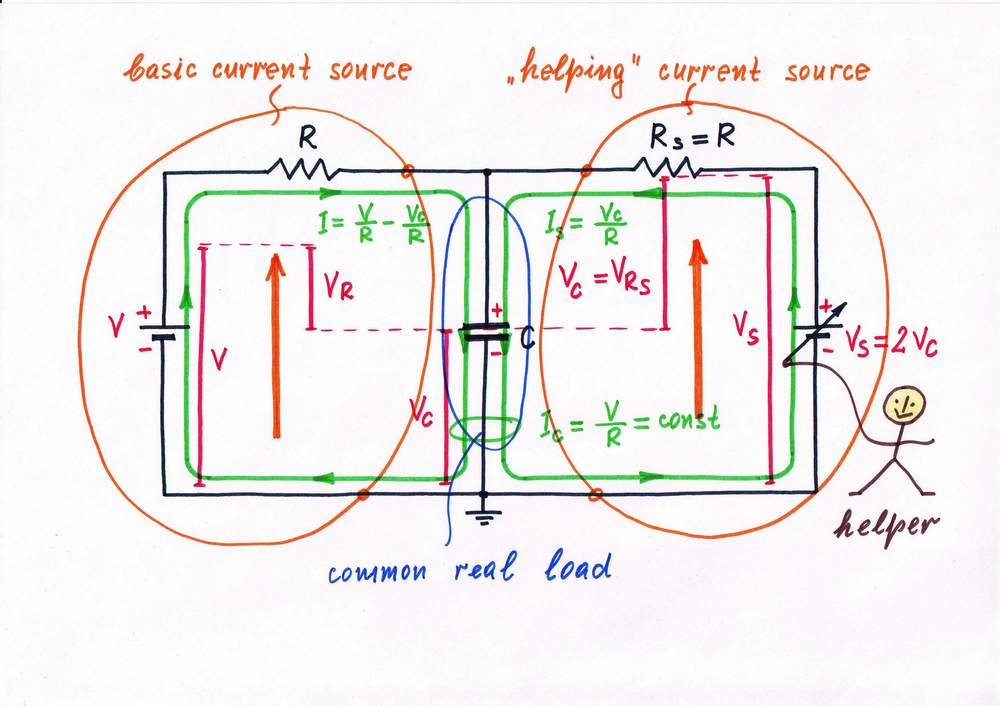 basic current source
„helping" current source
R
R_s = R
I = V/R - V_c/R
I_s = V_c/R
V_R
V_c = V_Rs
+
V
-
V
+
C
-
V_s
+
-
V_s = 2V_c
V_c
I_c = V/R = const
helper
common real load